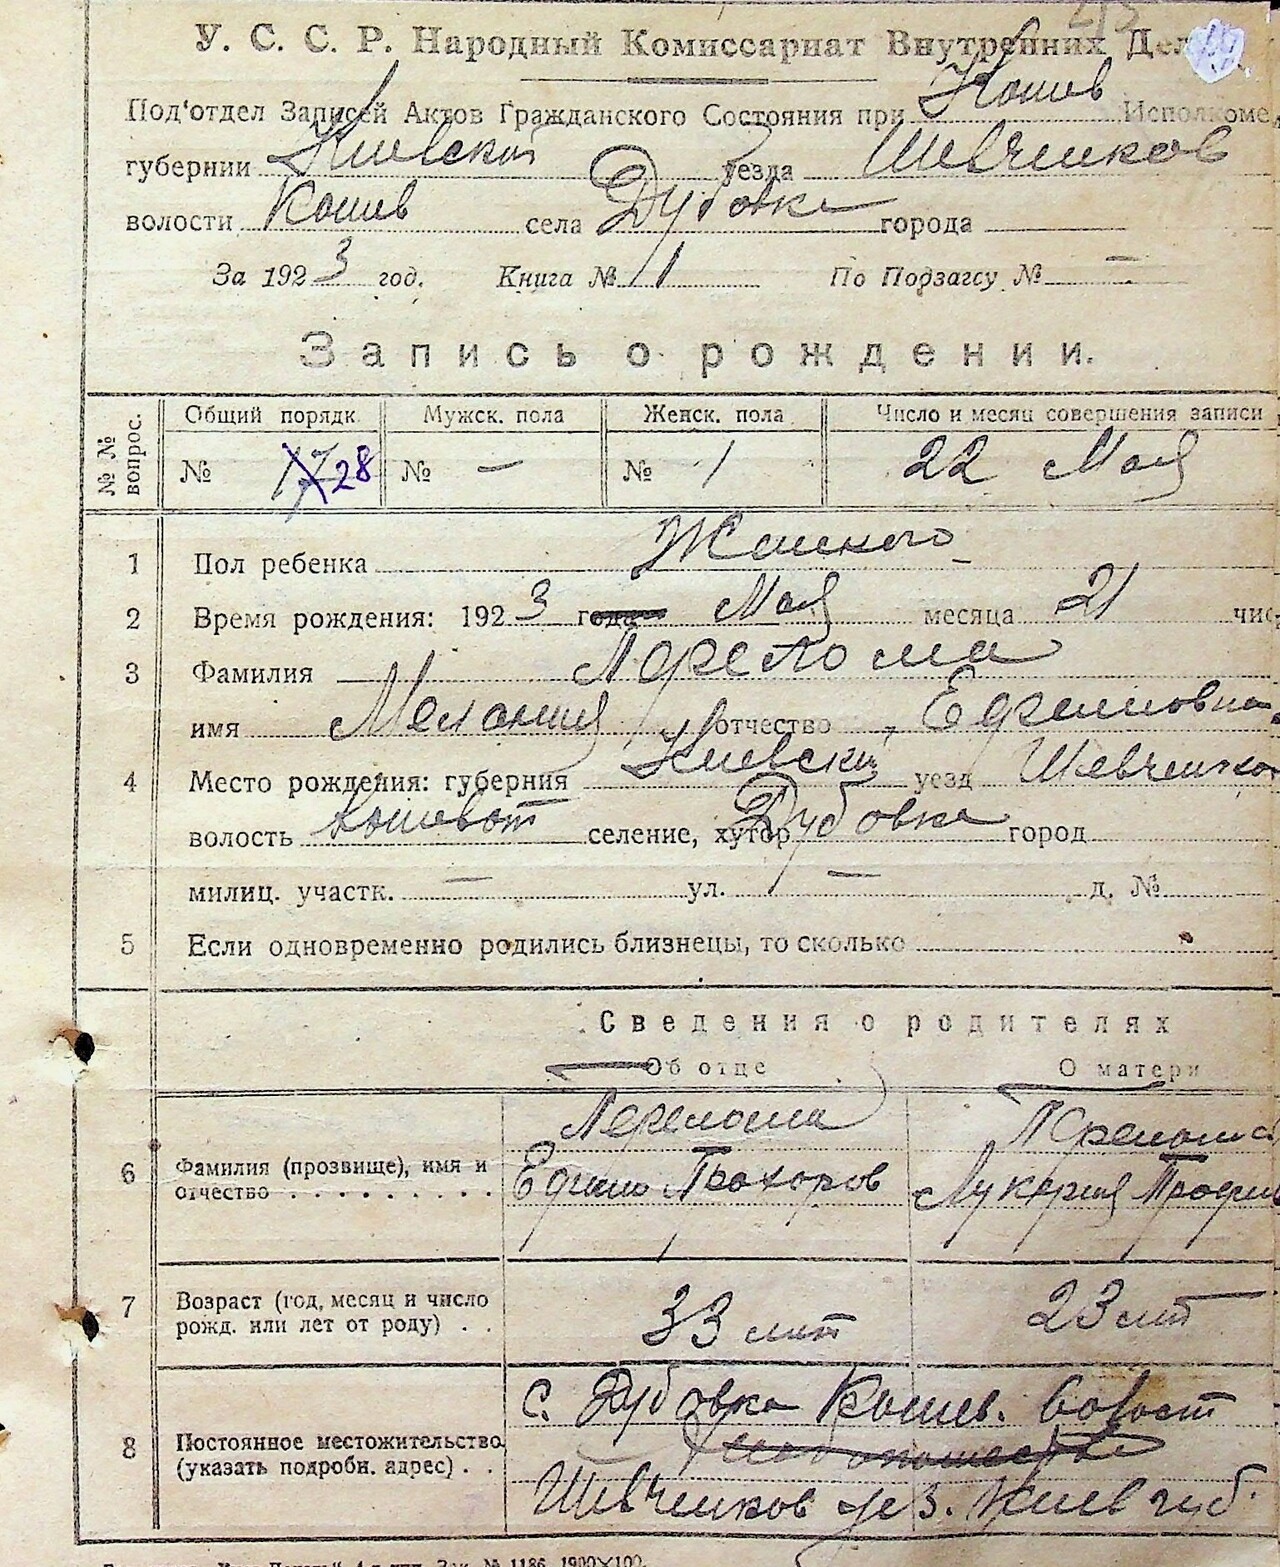 У. С. С. Р. Народный Комиссариат Внутренних Дел
Под'отдел Записей Актов Гражданского Состояния при Кошев Исполкоме
губернии Киевской уезда Шевченков
волости Кошев села Дубовка города
За 1923 год. Книга № 1 По Подзагсу № —
Запись о рождении.
№ № вопрос. Общий порядк. Мужск. пола Женск. пола Число и месяц совершения записи
№ 17 28 № — № 1 22 Мая
1 Пол ребенка Женского
2 Время рождения: 1923 года Мая месяца 21 чис
3 Фамилия Перелома
имя Мелания отчество Ефимовна
4 Место рождения: губерния Киевск уезд Шевченков
волость Кошеват селение, хутор Дубовка город
милиц. участк. — ул. — д. №
5 Если одновременно родились близнецы, то сколько
Сведения о родителях
Об отце О матери
Перелома Перелома
6 Фамилия (прозвище), имя и
отчество . . . . . . . . . . Ефим Прохоров Лукерия Трофим
7 Возраст (год, месяц и число
рожд. или лет от роду) . . 33 лит 23 лит
с. Дубовка Кошев. волост
8 Постоянное местожительство
(указать подробн. адрес) . .
Шевченков уез. Киев губ.
№ 1186. 1900×100.